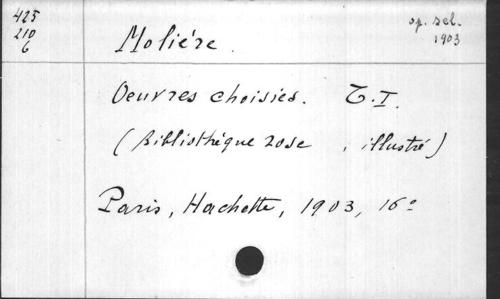 425
210
6
Molière.
op. sel.
1903
Oeuvres choisies. T. I.
(Bibliothèque rose , illustré)
Paris, Hachette, 1903, 16º